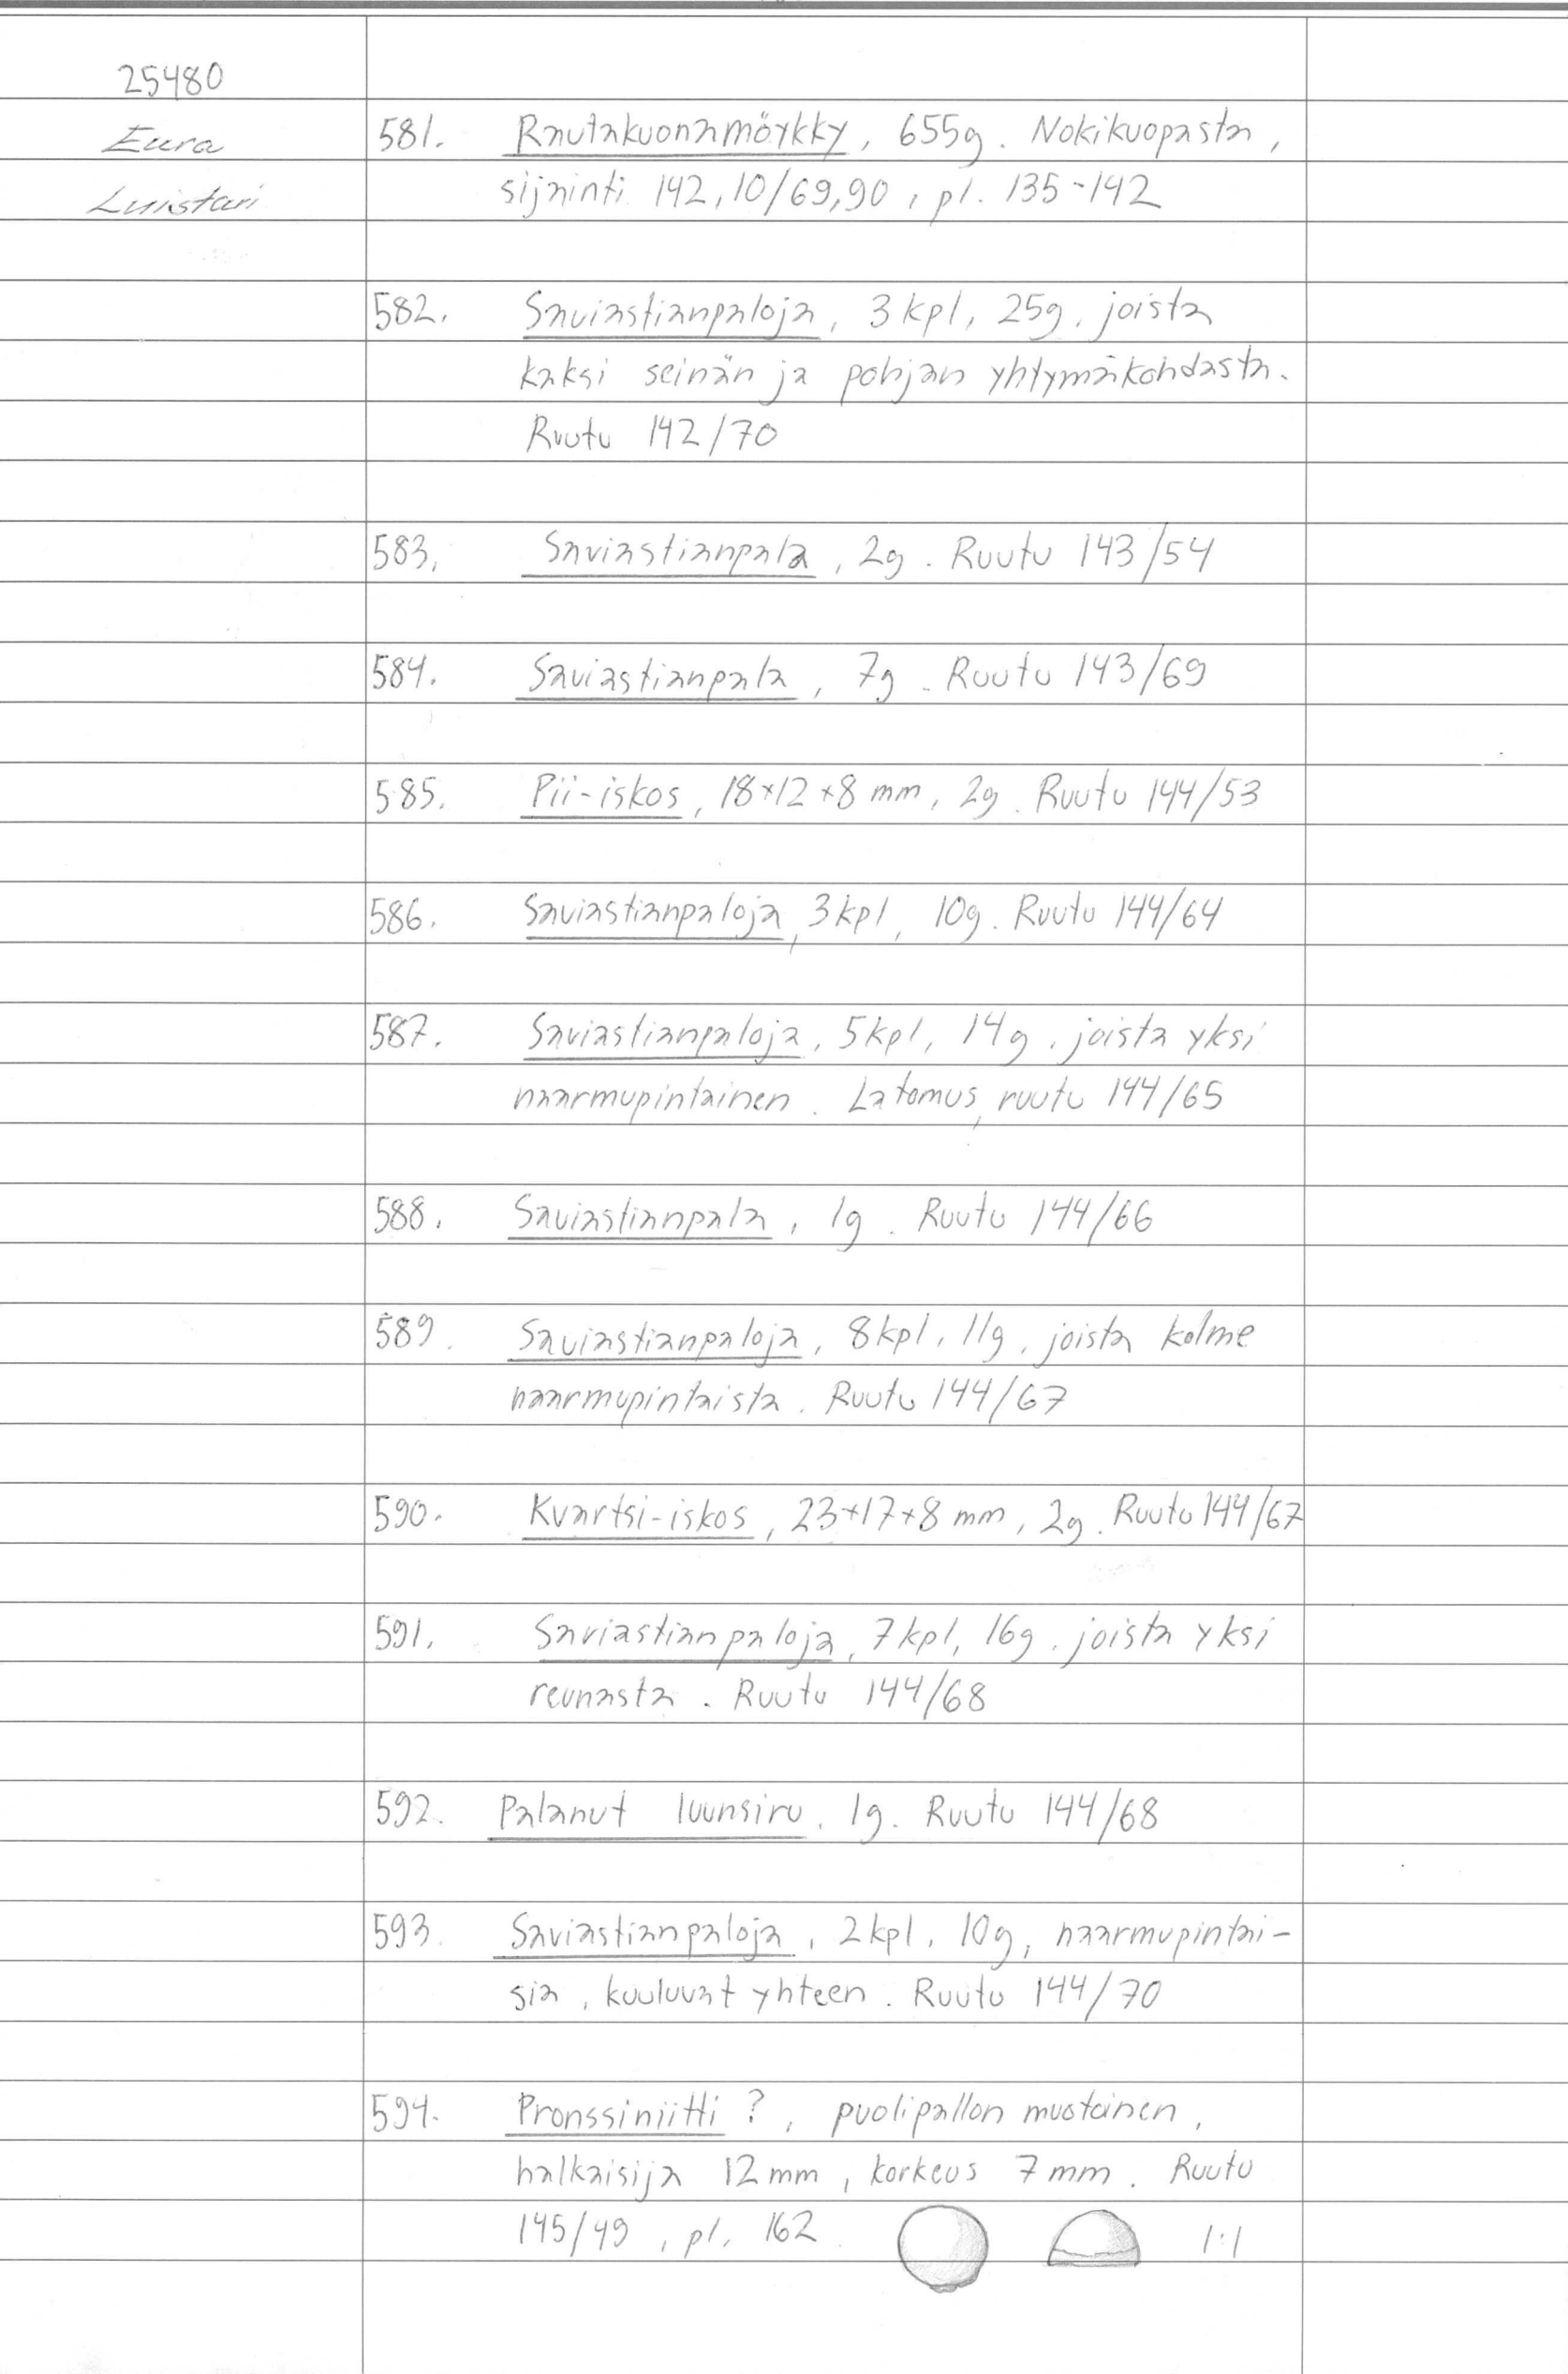 25480
Eura
Luistari
581. Rautakuonamöykky, 655g. Nokikuopasta,
sijainti 142,10/69,90, pl. 135-142
582. Saviastianpaloja, 3 kpl, 25g, joista
kaksi seinän ja pohjan yhtymäkohdasta.
Ruutu 142/70
583. Saviastianpala, 2g. Ruutu 143/54
584. Saviastianpala, 7g. Ruutu 143/69
585. Pii-iskos, 18×12×8 mm, 2g. Ruutu 144/53
586. Saviastianpaloja, 3kpl, 10g. Ruutu 144/64
587. Saviastianpaloja, 5kpl, 14g, joista yksi
naarmupintainen. Latomus, ruutu 144/65
588. Saviastianpala, 1g. Ruutu 144/66
589. Saviastianpaloja, 8kpl, 11g, joista kolme
naarmupintaista. Ruutu 144/67
590. Kvartsi-iskos, 23×17×8 mm, 2g. Ruutu 144/67
591. Saviastianpaloja, 7kpl, 16g, joista yksi
reunasta. Ruutu 144/68
592. Palanut luunsiru, 1g. Ruutu 144/68
593. Saviastianpaloja, 2kpl, 10g, naarmupintai-
sia, kuuluvat yhteen. Ruutu 144/70
594. Pronssiniitti ?, puolipallon muotoinen,
halkaisija 12mm, korkeus 7mm. Ruutu
145/49, pl. 162 1:1